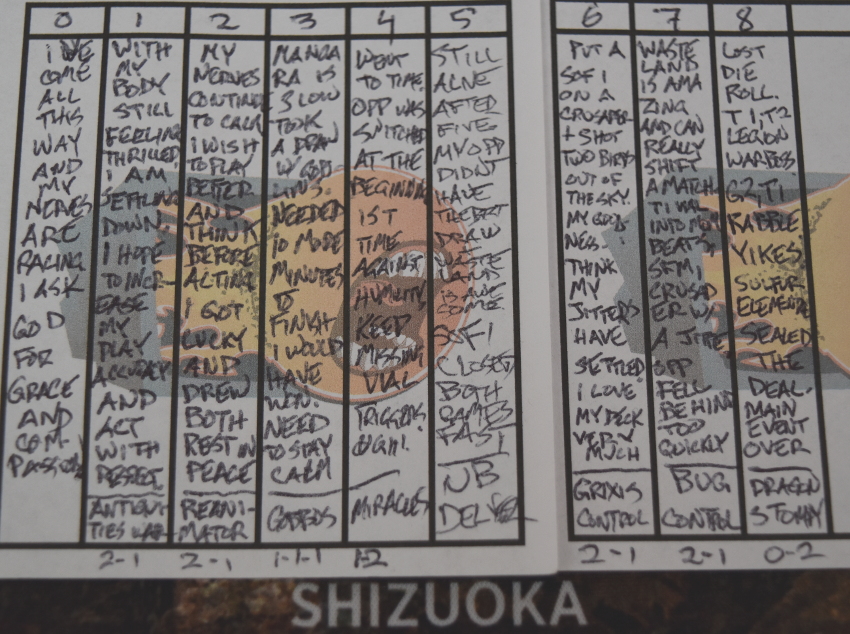 0
I'VE
COME
ALL
THIS
WAY
AND
MY
NERVES
ARE
RACING
I ASK
GOD
FOR
GRACE
AND
COM-
PASSION
1
WITH
MY
BODY
STILL
FEELING
THRILLED
I AM
SETTLING
DOWN.
I HOPE
TO INCR-
EASE
MY
PLAY
ACCURACY
AND
ACT
WITH
RESPECT
ANTIQUI-
TIES WAR
2-1
2
MY
NERVES
CONTINUE
TO CALM
I WISH
TO PLAY
BETTER
AND
THINK
BEFORE
ACTING
I GOT
LUCKY
AND
DREW
BOTH
REST IN
PEACE
REANI-
MATOR
2-1
3
MANGA
RA IS
SLOW
TOOK
A DRAW
W/ GOB
LINS.
NEEDED
10 MORE
MINUTES
TO
FINISH
I WOULD
HAVE
WON
NEED
TO STAY
CALM
GOBLINS
1-1-1
4
WENT
TO TIME.
OPP WAS
SNITCHED
AT THE
BEGINNING
IST
TIME
AGAINST
HUMILITY
KEEP
MISSING
VIAL
TRIGGERS
AGAIN!
MIRACLES
1-2
5
STILL
ALIVE
AFTER
FIVE
MY OPP
DIDN'T
HAVE
THE BEST
DRAW
WASTE
LAND
IS AWE
SOME
SO I
CLOSED
BOTH
GAMES
FAST
UB
DELVER
6
PUT A
SOFI
ON A
CRUSADER
+ SHOT
TWO BIRDS
OUT OF
THE SKY.
MY GOOD
NESS.
THINK
MY
JITTERS
HAVE
SETTLED
I LOVE
MY DECK
VERY
MUCH
GRIXIS
CONTROL
2-1
7
WASTE
LAND
IS AMA
ZING
AND CAN
REALLY
SHIFT
A MATCH.
T1 VIAL
INTO MOM
BEATS,
SFM,
CRUSAD
ER W/
A JITTE
OPP
FELL
BEHIND
TOO
QUICKLY
BUG
CONTROL
2-1
8
LOST
DIE
ROLL.
T1, T2
LEGION
WARBOSS.
G2, T1
RABBLE
YIKES
SULFUR
ELEMENTAL
SEALED
THE
DEAL.
MAIN
EVENT
OVER
DRAGON
STOMPY
0-2
SHIZUOKA